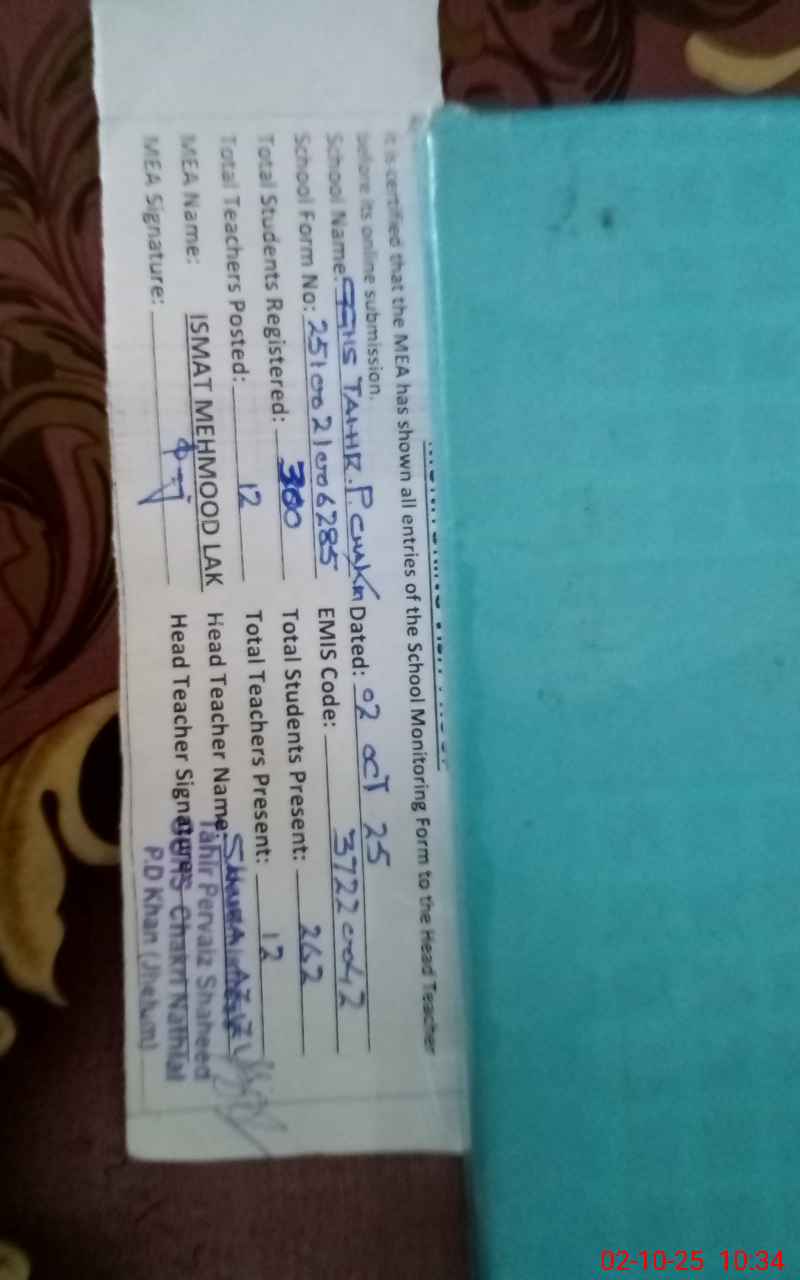 It is certified that the MEA has shown all entries of the School Monitoring Form to the Head Teacher
before its online submission.
School Name: GGHS TAHIR.P CHAKRI Dated: 02 OCT 25
School Form No: 25100210006285 EMIS Code: 37220042
Total Students Registered: 300 Total Students Present: 262
Total Teachers Posted: 12 Total Teachers Present: 12
MEA Name: ISMAT MEHMOOD LAK Head Teacher Name:
MEA Signature: Head Teacher Signature:
Tahir Pervaiz Shaheed
GGHS Chakri Nathial
P.D Khan (Jhelum)
02-10-25 10:34